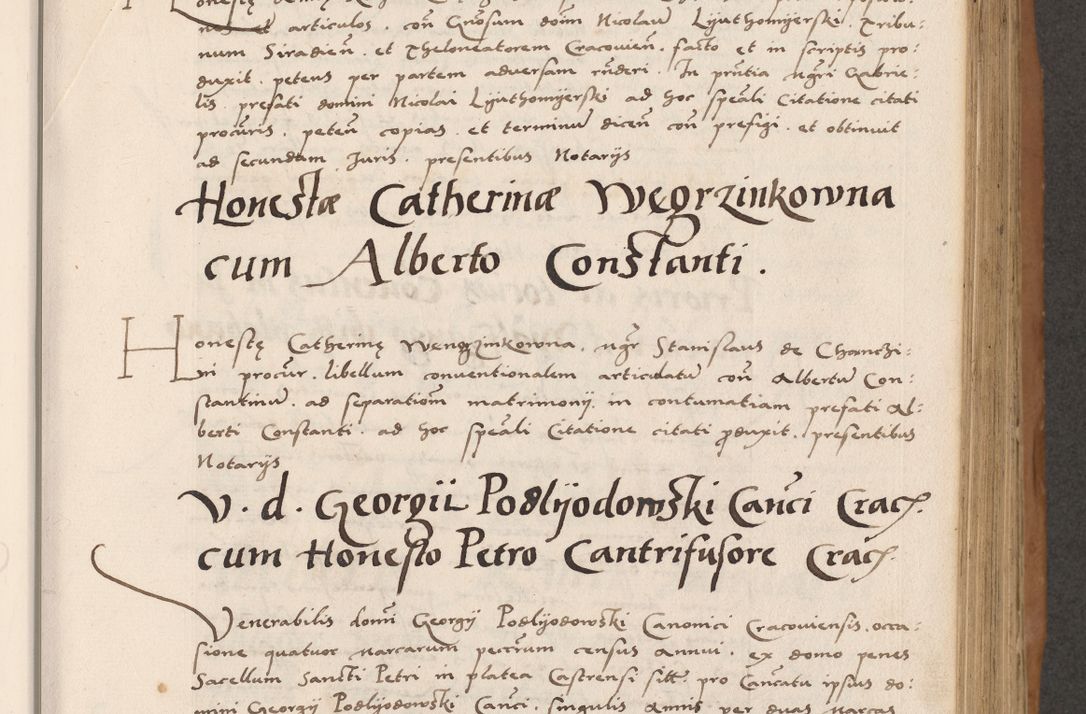 et articulos . con Gnosum domm Nicolaum Lyuthomyerski . Tribu:
num Siradien . et Theloneatorem Cracovien . facto et in scriptis pro:
duxit . petens per partem adversam rnderi . In pntia ngri Gabrie:
lis . prefati domini Nicolai Lyuthomyerski ad hoc speali Citatione citati
procuris . peten copias . et terminum dicen con prefigi . et obtinuit
ad secundam Juris . presentibus Notarijs
Honestæ Catherinæ Węgrzinkowna
cum Alberto Constanti .
Honestę Catherinę Wengrzinkowna . ngr Stanislaus de Chanczi:
ni procur . libellum conventionalem articulatum con Albertum Con:
stantinum . ad separationem matrimonij . in contumatiam prefati Al:
berti Constanti . ad hoc speali Citatione citati produxit . presentibus
Notarijs
V . d . Georgii Podlyodowski Canci Crac.
cum Honesto Petro Cantrifusore Crac.
Venerabilis domi Georgij Podlyodowski Canonici Cracoviensis . occa:
sione quatuor marcarum peccrum census annui . ex domo penes
Sacellum Sancti Petri in platea Castrensi sitt . pro Cancatu ipsius do:
mini Georgij Podlyodowski Canci . singulis Annis per duas Marcas